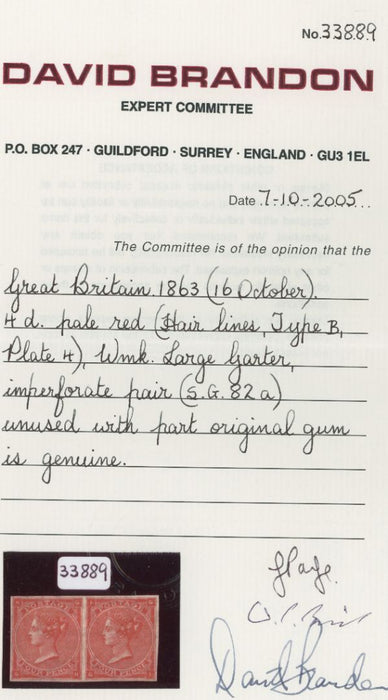 No. 33889
DAVID BRANDON
EXPERT COMMITTEE
P.O. BOX 247 · GUILDFORD · SURREY · ENGLAND · GU3 1EL
Date 7-10-2005
The Committee is of the opinion that the
Great Britain 1863 (16 October).
4d. pale red (Hair lines, Type B,
Plate 4), Wmk. Large Garter,
imperforate pair (S.G. 82a)
unused with part original gum
is genuine.
33889
POSTAGE POSTAGE
FOUR PENCE FOUR PENCE
David Brandon